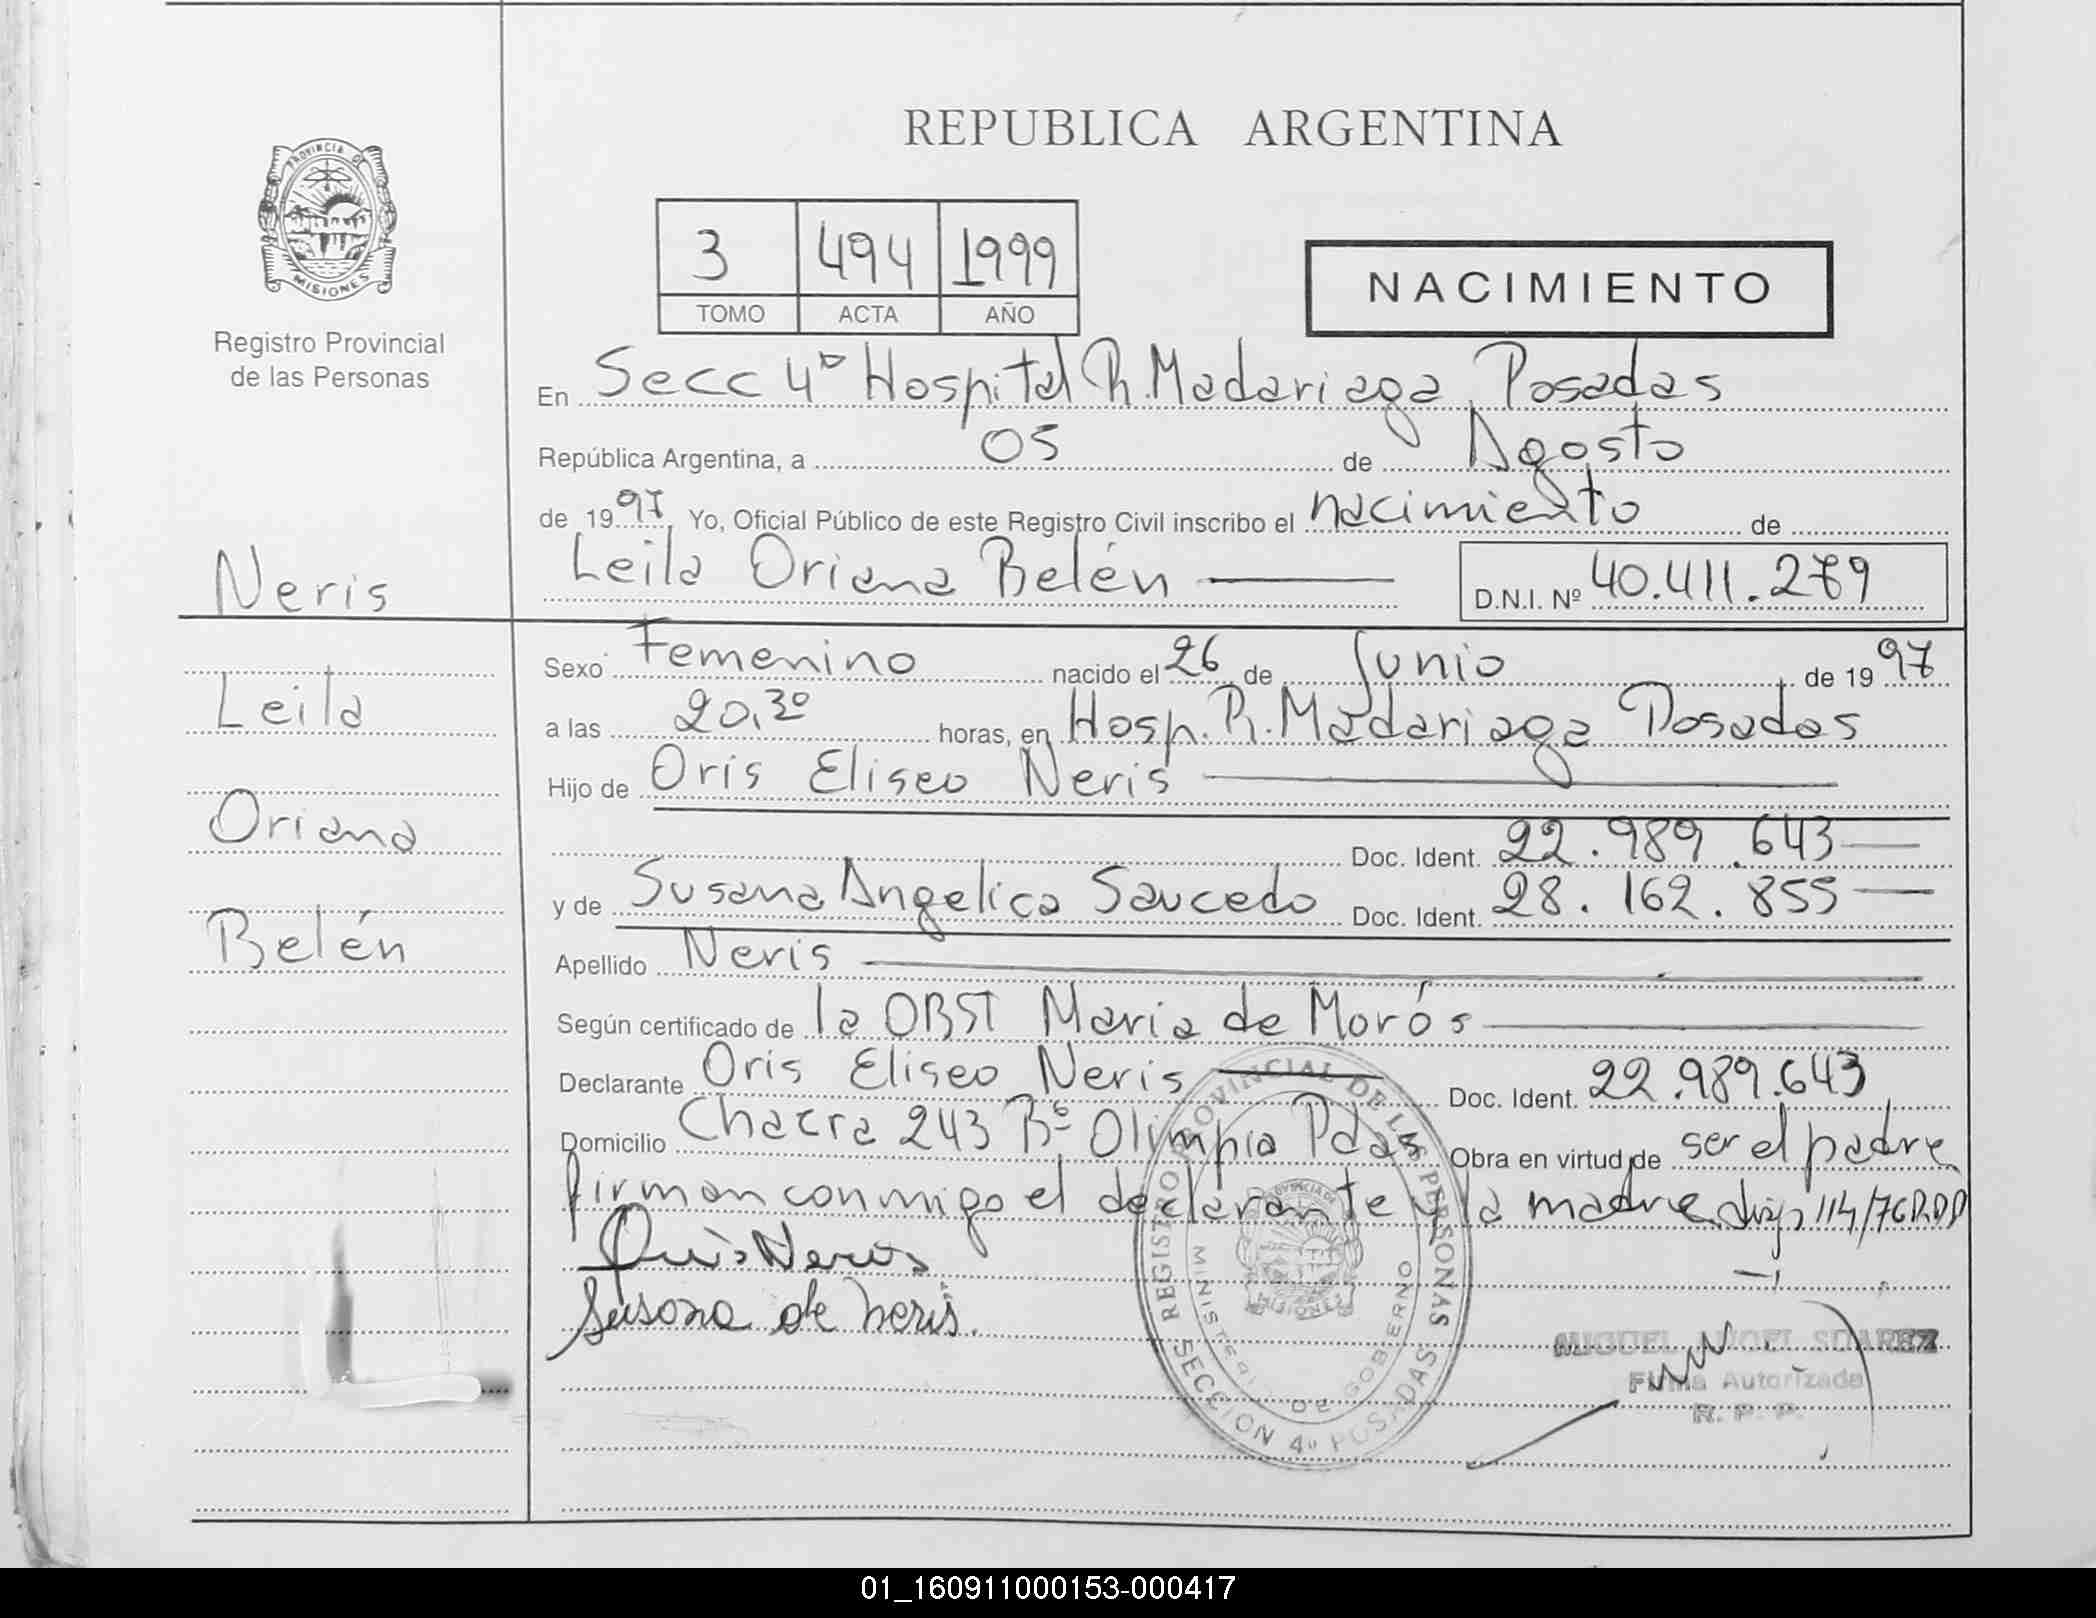 REPUBLICA ARGENTINA
PROVINCIA DE
MISIONES
Registro Provincial
de las Personas
3 494 1999
TOMO ACTA AÑO
NACIMIENTO
En Secc 4º Hospital R. Madariaga Posadas
República Argentina, a 05 de Agosto
de 1997 Yo, Oficial Público de este Registro Civil inscribo el nacimiento de
Leila Oriana Belén
D.N.I. Nº 40.411.279
Neris
Leila
Oriana
Belén
Sexo Femenino nacido el 26 de Junio de 1997
a las 20,30 horas, en Hosp. R. Madariaga Posadas
Hijo de Oris Eliseo Neris
Doc. Ident. 22.989.643
y de Susana Angelica Saucedo Doc. Ident. 28.162.855
Apellido Neris
Según certificado de la OBST Maria de Morós
Declarante Oris Eliseo Neris Doc. Ident. 22.989.643
Domicilio Chacra 243 Bº Olimpia Pdas Obra en virtud de ser el padre
firman conmigo el declarante y la madre. disp 114/76
Oris Neris
Susana de Neris.
REGISTRO PROVINCIAL DE LAS PERSONAS
MINISTERIO DE GOBIERNO
PROVINCIA DE
MISIONES
SECCION 4º POSADAS
MIGUEL SUAREZ
Firma Autorizada
R. P. P.
01_160911000153-000417